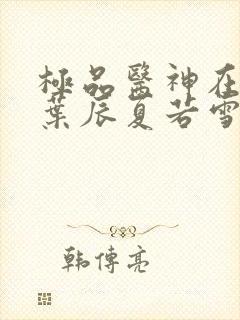 極品醫神在
葉辰夏若雪
韩傳亮